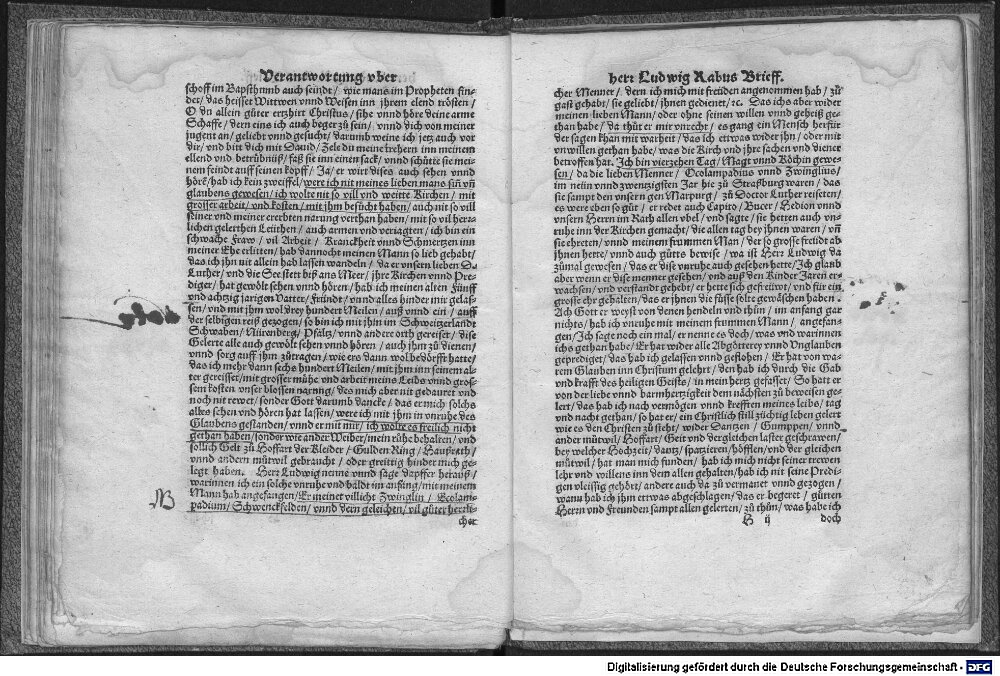 Verantwortung vber
schoff im Bapsthumb auch seindt / wie mans im Propheten fin-
det / das heisset Wittwen vnnd Weisen inn jhrem elend trösten /
O du allein gůter ertzhirt Christus / sihe vnnd höre deine arme
Schaffe / dern eins ich auch beger zů sein / vnnd dich von meiner
jugent an / geliebt vnnd gesucht / darumb weine ich jetz auch vor
dir / vnd bitt dich mit Dauid / Zele du meine trehern inn meinem
ellend vnd betrübnüß / faß sie inn einen sack / vnnd schütte sie mei-
nem feindt auff seinen kopff / Ja / er wirt dises auch sehen vnnd
hörē / hab ich kein zweiffel / were ich nit meines lieben mans sin̄ vn̄
glaubens gewesen / ich wolte nit so vill vnd weitte Kirchen / mit
grosser arbeit / vnd kosten / mit jhm besůcht haben / auch nit so vill
seiner vnd meiner ererbten narung verthan haben / mit so vil herr-
lichen gelerthen Leüthen / auch armen vnd veriagten / ich bin ein
schwache Fraw / vil Arbeit / Kranckheit vnnd Schmertzen inn
meiner Ehe erlitten / hab dannocht meinen Mann so lieb gehabt /
das ich jhn nit allein hab lassen wandeln / da er vnsern lieben D.
Luther / vnd die See stett biß ans Meer / jhre Kirchen vnnd Pre-
diger / hat gewölt sehen vnnd hören / hab ich meinen alten Fünff
vnd achtzig jarigen Vatter / Freündt / vnnd alles hinder mir gelas-
sen / vnd mit jhm wol drey hundert Meilen / auß vnnd ein / auff
der selbigen reiß gezogen / so bin ich mit jhm im Schweitzerlandt
Schwaben / Nürenberg / Pfaltz / vnnd andre orth gereiset / dise
Gelerte alle auch gewölt sehen vnnd hören / auch jhm zů dienen /
vnnd sorg auff jhm zůtragen / wie ers dann wol bedörfft hatte /
das ich mehr dann sechs hundert Meilen / mit jhm inn seinem al-
ter gereisset / mit grosser mühe vnd arbeit meins Leibs vnnd gros-
sem kosten vnser blossen narung / des mich aber nit gedauret vnd
noch nit rewet / sonder Gott darumb dancke / das er mich solchs
alles sehen vnd hören hat lassen / were ich mit jhm in vnruhe des
Glaubens gestanden / vnnd er mit mir / ich wolte es freilich nicht
gethan haben / sonder wie ander Weiber / mein růhe behalten / vnd
sollich Gelt zů Hoffart der Kleider / Gulden Ring / Haußrath /
vnnd andern můtwil gebraucht / oder greittig hinder mich ge-
legt haben. Herr Ludwig nenne vnnd sage dapffer herauß /
warinnen ich ein solche vnruhe vnd baldt im anfang / mit meinem
Mann hab angefangen / Er meinet villicht Zwinglin / Ecolam-
padium / Schwenckfelden / vnnd dern geleichen / vil gůter herrli-
cher
NB
herr Ludwig Rabus Brieff.
cher Menner / dern ich mich mit freüden angenommen hab / zů
gast gehabt / sie geliebt / jhnen gedienet / ꝛc. Das ichs aber wider
meinen lieben Mann / oder ohne seinen willen vnnd geheiß ge-
than habe / da thůt er mir vnrecht / es gang ein Mensch herfür
der sagen khan mit warheit / das ich etwas wider jhn / oder mit
vnwillen gethan habe / was die Kirch vnd jhre sachen vnd diener
betroffen hat. Ich bin vierzehen Tag / Magt vnnd Köchin gewe-
sen / da die lieben Menner / Oecolampadius vnnd Zwinglius /
im neün vnnd zwenzigsten Jar hie zů Straßburg waren / das
sie sampt den vnsern gen Marpurg / zů Doctor Luther reiseten /
es were eben so gůt / er redet auch Capito / Bucer / Hedion vnnd
vnsern Herrn im Rath allen vbel / vnd sagte / sie hetten auch vn-
ruhe inn der Kirchen gemacht / die allen tag bey jhnen waren / vn̄
sie ehreten / vnnd meinem frummen Man / der so grosse freüdt ab
jhnen hette / vnnd auch gůtts bewise / wa ist Herr Ludwig da
zůmal gewesen / das er dise vnruhe auch gesehen hette / Ich glaub
aber wenn er dise menner gesehen / vnd auß den Kinder Jaren er-
wachsen / vnd verstandt gehebt / er hette sich gefröwt / vnd für ein
grosse ehr gehalten / das er jhnen die füsse solte gewäschen haben.
Ach Gott er weyst von denen hendeln vnd thůn / im anfang gar
nichts / hab ich vnruhe mit meinem frummen Mann / angefan-
gen / Ich sage noch ein mal / er nenne es doch / was vnd warinnen
ichs gethan habe / Er hat wider alle Abgötterey vnnd Vnglauben
geprediget / das hab ich gelassen vnnd geflohen / Er hat von wa-
rem Glauben inn Christum gelehrt / den hab ich durch die Gab
vnd krafft des heiligen Geists / in mein hertz gefasset / So hatt er
von der liebe vnnd barmhertzigkeit dem nächsten zů beweisen ge-
lert / das hab ich nach vermögen vnnd krefften meines leibs / tag
vnd nacht gethan / so hat er / ein Christlich still züchtig leben gelert
wie es den Christen zů steht / wider Dantzen / Gumppen / vnnd
ander můtwil / Hoffart / Geit vnd dergleichen laster geschrawen /
bey welcher Hochzeit / dantz / spatzieren / höfflen / vnd der gleichen
můtwil / hat man mich funden / hab ich mich nicht seiner trewen
lehr vnd willens inn dem allen gehalten / hab ich nit seine Predi-
gen vleissig gehört / andere auch da zů vermanet vnnd gezogen /
wann hab ich jhm ettwas abgeschlagen / das er begeret / gůtten
Herrn vnd Freunden sampt allen gelerten / zů thůn / was habe ich
B ij doch
Digitalisierung gefördert durch die Deutsche Forschungsgemeinschaft - DFG